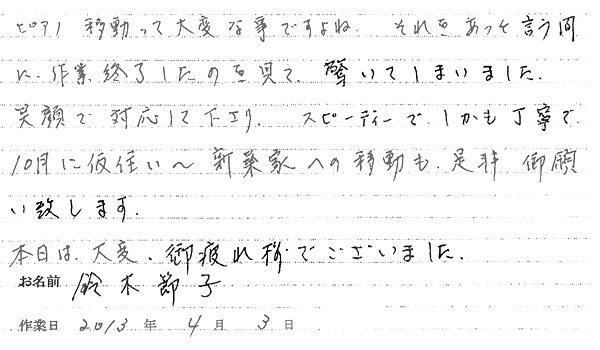 ピアノ移動って大変な事ですよね。それをあっと言う間
に、作業終了したのを見て、驚いてしまいました。
笑顔で対応して下さり、スピーディーで、しかも丁寧で、
10月に仮住い〜新築家への移動も、是非御願
い致します。
本日は、大変、御疲れ様でございました。
お名前 鈴木節子
作業日 2013年 4月 3日